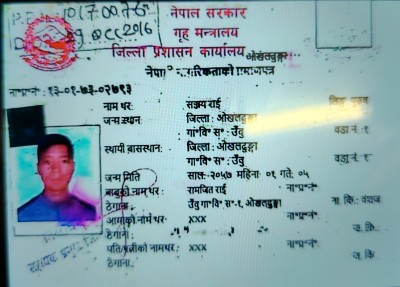 नेपाल सरकार
गृह मन्त्रालय
जिल्ला प्रशासन कार्यालय ओखलढुङ्गा
नेपाली नागरिकताको प्रमाणपत्र
ना॰प्र॰नं॰ १३-०१-७३-०२७९३
नाम थर: सञ्जय राई
जन्म स्थान: जिल्ला: ओखलढुङ्गा
गा॰वि॰स॰: उँवु वडा नं. १
स्थायी बासस्थान: जिल्ला: ओखलढुङ्गा
गा॰वि॰स॰: उँवु वडा नं. १
जन्म मिति साल: २०५७ महिना: ०१ गते: ०५
बाबुको नाम थर: रामजित राई ना॰प्र॰नं॰
ठेगाना: उँवु गा॰वि॰स॰-१, ओखलढुङ्गा ना. कि.: वंशज
आमाको नाम थर: xxx ना॰प्र॰नं॰
ठेगाना: ना. कि.
पति/पत्नीको नाम थर: xxx ना॰प्र॰नं॰
ठेगाना: ना. कि